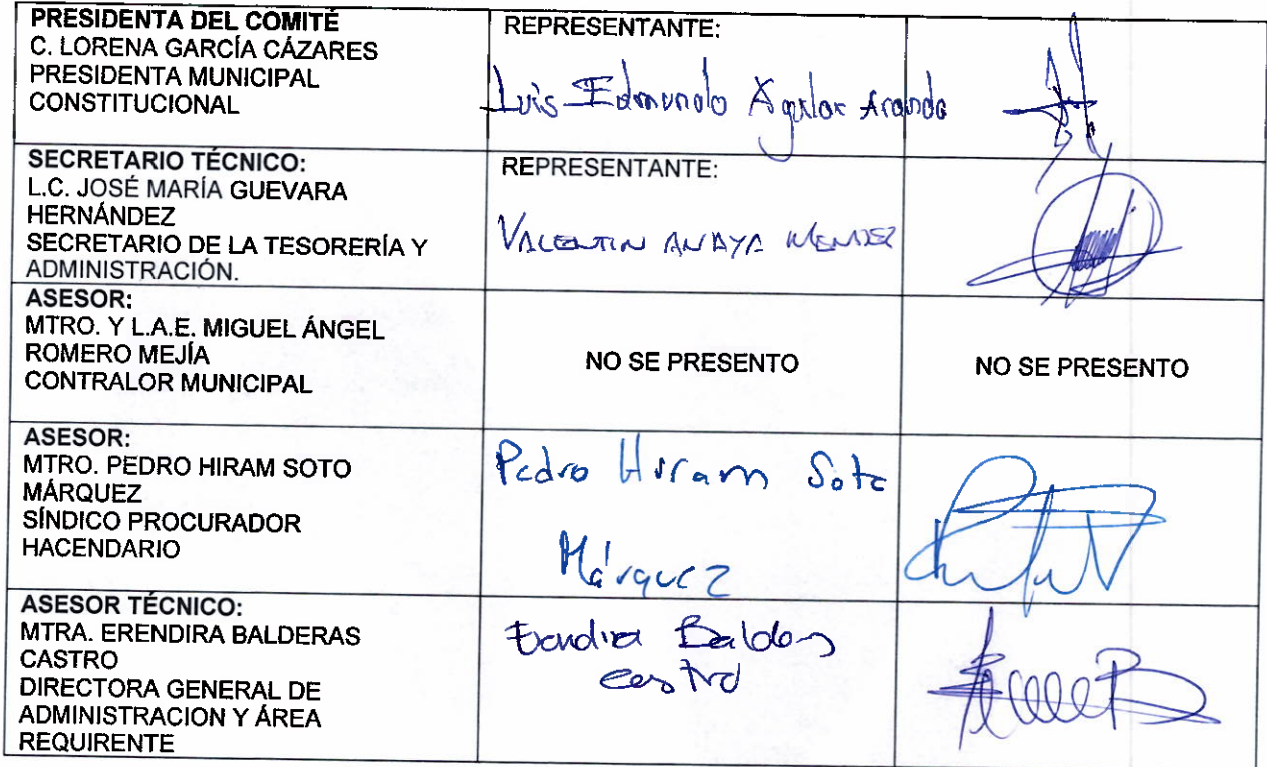 PRESIDENTA DEL COMITÉ
C. LORENA GARCÍA CÁZARES
PRESIDENTA MUNICIPAL
CONSTITUCIONAL
REPRESENTANTE:
Luis Edmundo Aguilar Aranda
SECRETARIO TÉCNICO:
L.C. JOSÉ MARÍA GUEVARA
HERNÁNDEZ
SECRETARIO DE LA TESORERÍA Y
ADMINISTRACIÓN.
REPRESENTANTE:
VALENTIN ANAYA MENDEZ
ASESOR:
MTRO. Y L.A.E. MIGUEL ÁNGEL
ROMERO MEJÍA
CONTRALOR MUNICIPAL
NO SE PRESENTO
NO SE PRESENTO
ASESOR:
MTRO. PEDRO HIRAM SOTO
MÁRQUEZ
SÍNDICO PROCURADOR
HACENDARIO
Pedro Hiram Soto
Márquez
ASESOR TÉCNICO:
MTRA. ERENDIRA BALDERAS
CASTRO
DIRECTORA GENERAL DE
ADMINISTRACION Y ÁREA
REQUIRENTE
Erendira Balderas
Castro